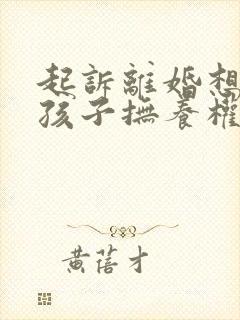 起訴離婚想
孩子撫養權
黃蓓才